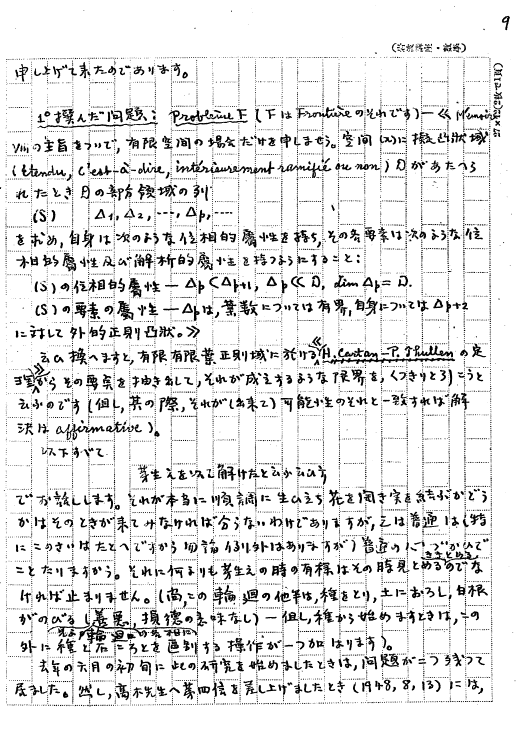 9
申し上げて来たのであります。
1º 撰んだ問題: Problème F (F は Frontière のそれです) — ≪ Mémoire
VIII の主旨をついで, 有限空間の場合だけを申しませう。空間 (x) に擬凸状域
(étendu, c'est-à-dire, intérieurement ramifié ou non) D があたへら
れたとき D の部分領域の列
(S) Δ₁, Δ₂, ···, Δp, ···
を求め, 自身は次のような位相的属性を持ち, その各要素は次のような位
相的属性及び解析的属性を持つようにすること:
(S) の位相的属性 — Δp < Δp+1, Δp ≪ D, lim Δp = D.
(S) の要素の属性 — Δp は, 葉数については有界, 自身については Δp+2
に対して外的正則凸状。≫
云ひ換へますと, 有限有限葉正則域に於ける H. Cartan – P. Thullen の定
理から その要素を抽き出して, それが成立するような限界を, くつきりとろうこうと
云ふのです (但し, 其の際, それが(出来て)可能性のそれと一致すれば解
決は affirmative)。
以下すべて
芽生えを以て解けたと云ふ云ひ方
でお話しします。それが本当に順調に生ひ立ち 花を開き実を結ぶかどう
かはそのときが来てみなければ分らないわけでありますが, 之は普通は (特
にこのさいはたとへですから勿論例外はありますが) 普通の
ことたりますから。それに何よりも芽生えの時の有様はその時見とめるのでな
ければ止まりません。(尚, この輪廻の他半は, 種をとり, 土におろし, 白根
がのびる (善悪, 損徳の意味なし) — 但し, 種から始めますときは, この
外に種と石ころとを区別する操作が一つ加はります)。
去年の六月の初旬に此の研究を始めましたときは, 問題が二つ残つて
居ました。然し, 高木先生へ第四信を差し上げましたとき (1948, 8, 13) には,